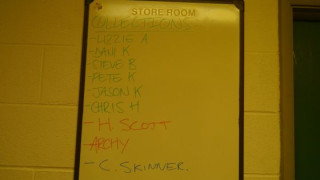 STORE ROOM
- LIZZIE A
- DAVI K
- STEVE B
- PETE K
- JASON K
- CHRIS H
- H. SCOTT
- ARCHY
- C. SKINNER.